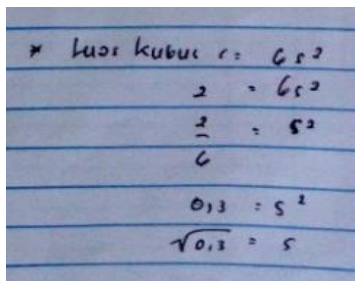 * Luas kubus c = 6s²
2 = 6s²
2/6 = s²
0,3 = s²
√0,3 = s